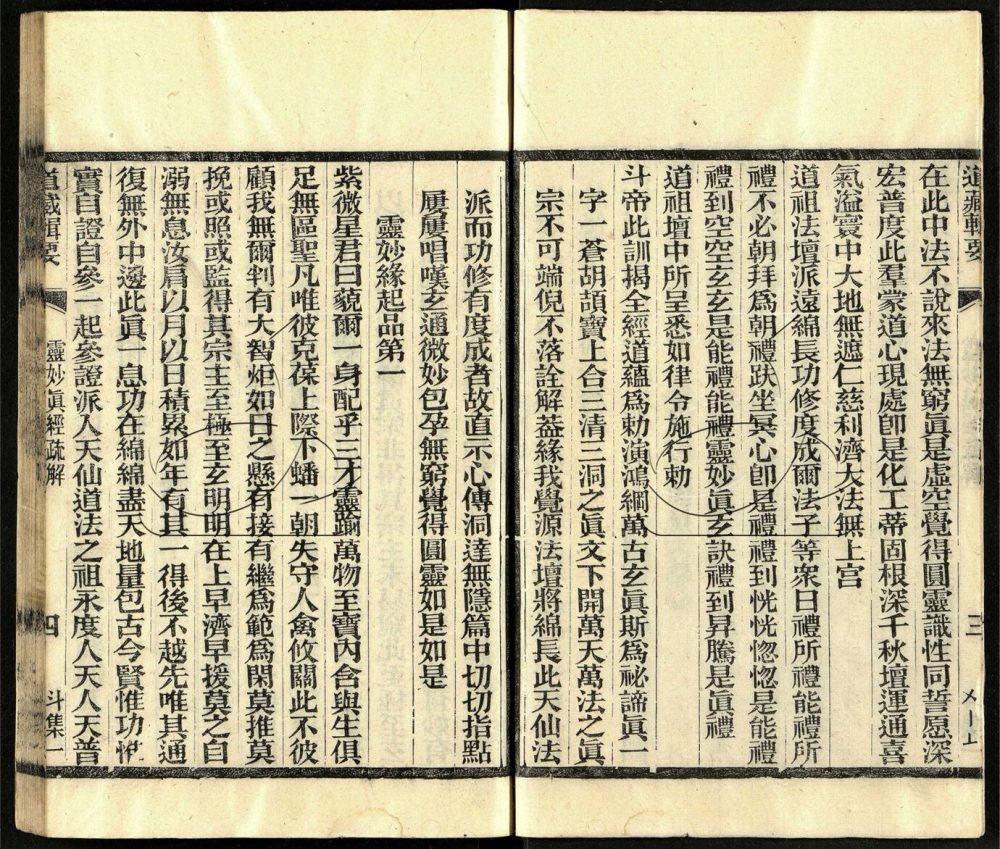 道藏輯要
三
在此中法不說來法無窮眞是虛空覺得圓靈識性同誓愿深
宏普度此羣蒙道心現處卽是化工蒂固根深千秋壇運通喜
氣溢寰中大地無遮仁慈利濟大法無上宫
道祖法壇派遠綿長功修度成爾法子等衆曰禮所禮能禮所
禮不必朝拜爲朝禮趺坐冥心卽是禮禮到恍恍惚惚是能禮
禮到空空玄玄是能禮能禮靈妙眞玄訣禮到昇騰是眞禮
道祖壇中所呈悉如律令施行勅
斗帝此訓揭全經道蘊爲勅演鴻綱萬古玄眞斯爲祕諦眞一
字一蒼胡頡寶上合三清三洞之眞文下開萬天萬法之眞
宗不可端倪不落詮解葢緣我覺源法壇將綿長此天仙法
派而功修有度成者故直示心傳洞達無隱篇中切切指點
屢屢唱嘆玄通微妙包孕無窮覺得圓靈如是如是
靈妙緣起品第一
紫微星君曰藐爾一身配乎三才靈踰萬物至寶內含與生俱
足無區聖凡唯彼克葆上際下蟠一朝失守人禽攸關此不彼
顧我無爾判有大智炬如日之懸有接有繼爲範爲閑莫推莫
挽或照或監得其宗主至極至玄明明在上早濟早援莫之自
溺無息汝肩以月以日積累如年有其一得後不越先唯其通
復無外中邊此眞一息功在綿綿盡天地量包古今賢惟功惟
實自證自參一起參證派入天仙道法之祖永度人天人天普
道藏輯要
靈妙眞經疏解
四
斗集一